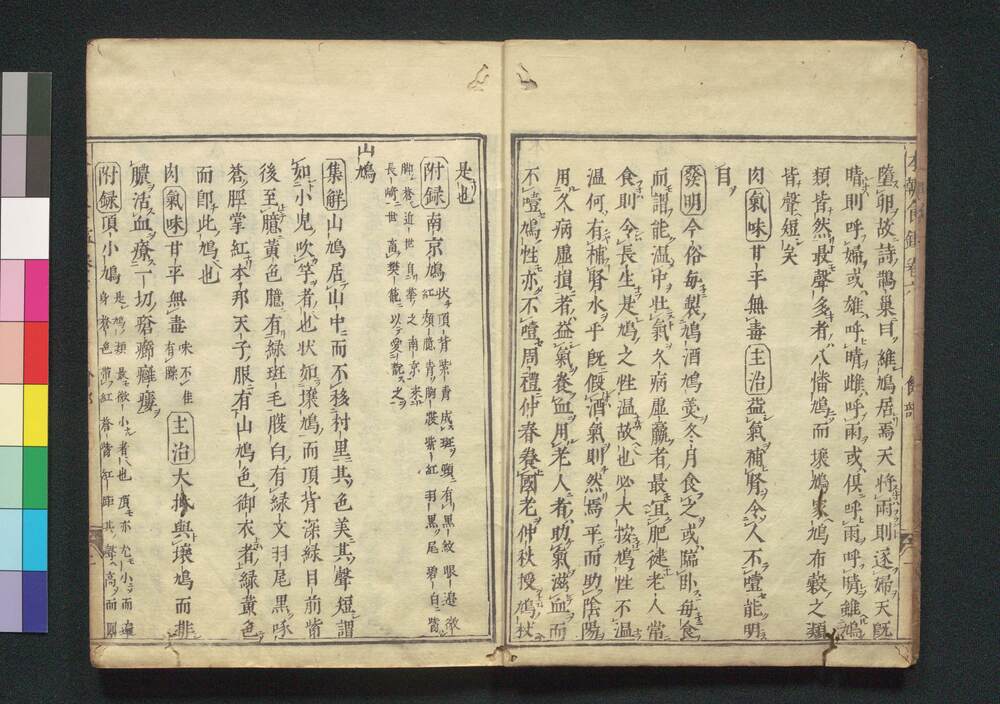 墮卵故詩鵲巢曰維鳩居焉天將雨則逐婦天既
晴則呼婦或雄呼晴雌呼雨或倶呼雨呼晴雖鳴
類皆然最聲多者八幡鳩而壌鳩家鳩布穀之類
皆聲短矣
肉氣味甘平無毒主治益氣補腎令人不噎能明
目
發明今俗毎製鳩酒鳩羮冬月食之或臨卧毎食
而謂能温中壯氣久病虚羸者最宜肥健老人常
食則令長生是鳩之性温故也必大按鳩性不温
温何有補腎水乎既假酒氣則然焉平而助陰陽
用久病虚損者益氣養血用老人者助氣滋血而
不噎鳩性亦不噎周禮仲春養國老仲秋授鳩杖
是也
附録南京鳩状頂背紫青成斑頸有黒紋眼邊微
紅頬臆青胸腹紫紅羽黒尾碧白觜
脚蒼近世自華之南京来
長崎世畜樊籠以愛翫之
山鳩
集解山鳩居山中而不移村里其色美其聲短謂
如小児吹竽者也状如壌鳩而頂背深緑目前觜
後至臆黄色臆有緑斑毛腹白有緑文羽尾黒喙
蒼脛掌紅本邦天子服有山鳩色御衣者緑黄色
而即此鳩也
肉氣味甘平無毒味不佳
有臊主治大抵與壌鳩而排
膿活血療一切瘡癤癰瘻
附録頂小鳩是鳩類最微小者也頂亦尤小而遍
身蒼色帶紅蒼觜紅距其聲高而圓